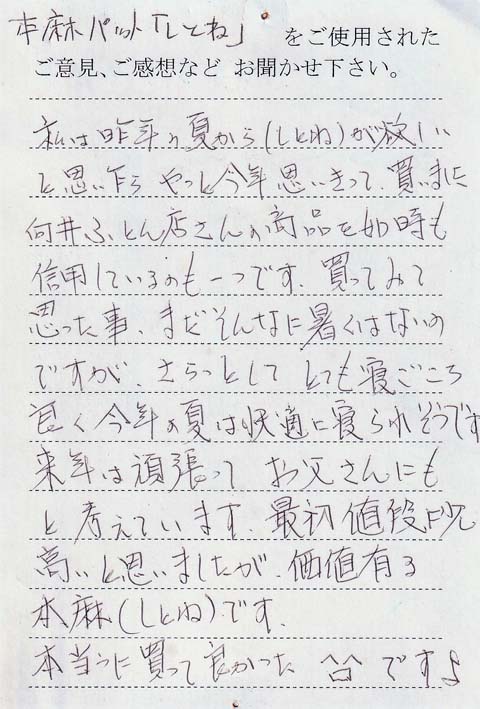 本麻パット「しとね」 をご使用された
ご意見、ご感想など お聞かせ下さい。
私は昨年の夏から(しとね)が欲しい
と思い乍ら やっと今年思いきって、買いました
向井ふとん店さんの商品を何時も
信用しているのも一つです。買ってみて
思った事、まだそんなに暑くはないの
ですが、さらっとして とても寝ごこち
良く今年の夏は快適に寝られそうです
来年は頑張って お父さんにも
と考えています。最初値段が少し
高いと思いましたが、価値有る
本麻(しとね)です。
本当うに買って良かった 品です♪